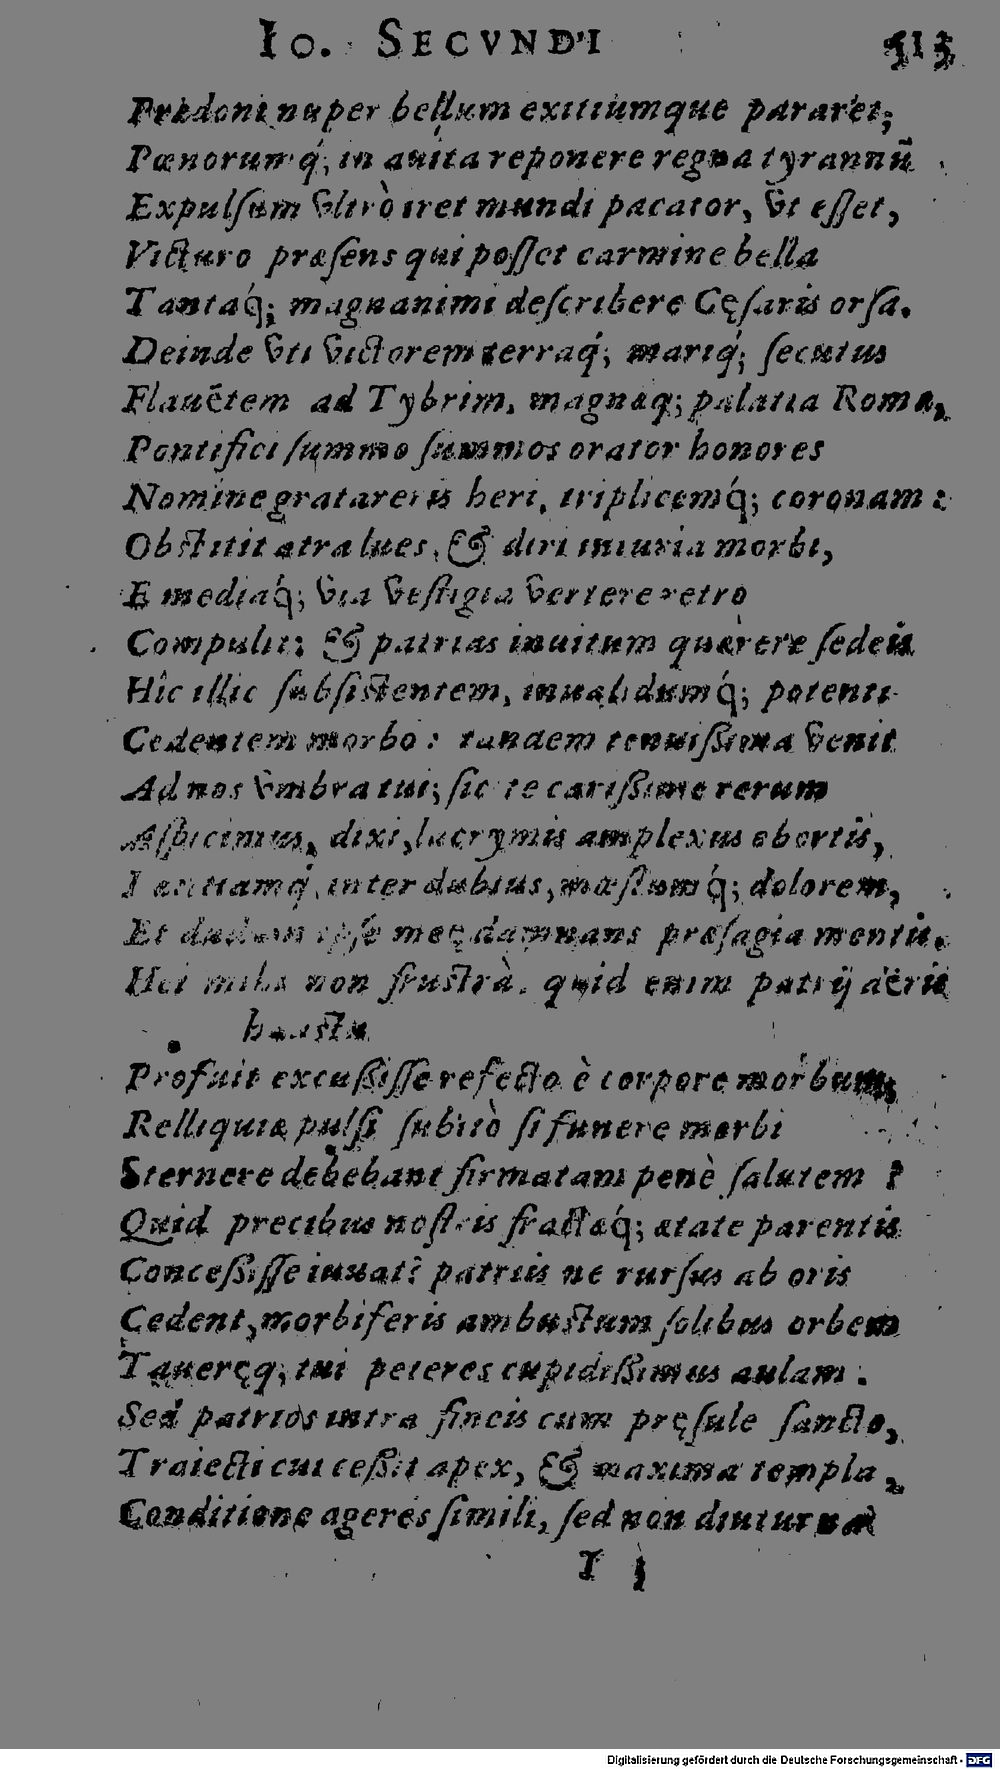 IO. SECVNDI 513
Prædoni nuper bellum exitiumque pararet;
Pœnorumq́; in auita reponere regna tyrannū
Expulſum vltrò iret mundi pacator, vt eſſet,
Victuro præſens qui poſſet carmine bella
Tantaq́; magnanimi deſcribere Cęſaris orſa.
Deinde vti victorem terraq́; mariq́; ſecutus
Flauētem ad Tybrim, magnaq; palatia Romæ,
Pontifici ſummo ſummos orator honores
Nomine gratareris heri, triplicemq́; coronam:
Obſtitit atra lues, & diri iniuria morbi,
E mediaq́; via veſtigia vertere retro
Compulit; & patrias inuitum quærere ſedeis
Hîc illic ſubſiſtentem, inualidumq́; potenti
Cedentem morbo: tandem tenuiſſima venit
Ad nos vmbra tui; ſic te cariſſime rerum
Aſpicimus, dixi, lacrymis amplexus obortis,
Lætitiamq́, inter dubius, mœſtumq́; dolorem,
Et dudum ipſe meę damnans præſagia mentis.
Hei mihi non fruſtrà. quid enim patrij aëris
hauſtu
Profuit excuſſiſſe refecto è corpore morbum,
Relliquiæ pulſi ſubitò ſi funere morbi
Sternere debebant firmatam penè ſalutem?
Quid precibus noſtris fractaq́; ætate parentis
Conceſſiſſe iuuat? patriis ne rurſus ab oris
Cedent, morbiferis ambuſtum ſolibus orbem
Taueręq; tui peteres cupidiſſimus aulam:
Sed patrios intra fineis cum pręſule ſancto,
Traiecti cui ceſſit apex, & maxima templa,
Conditione ageres ſimili, ſed non diuturna